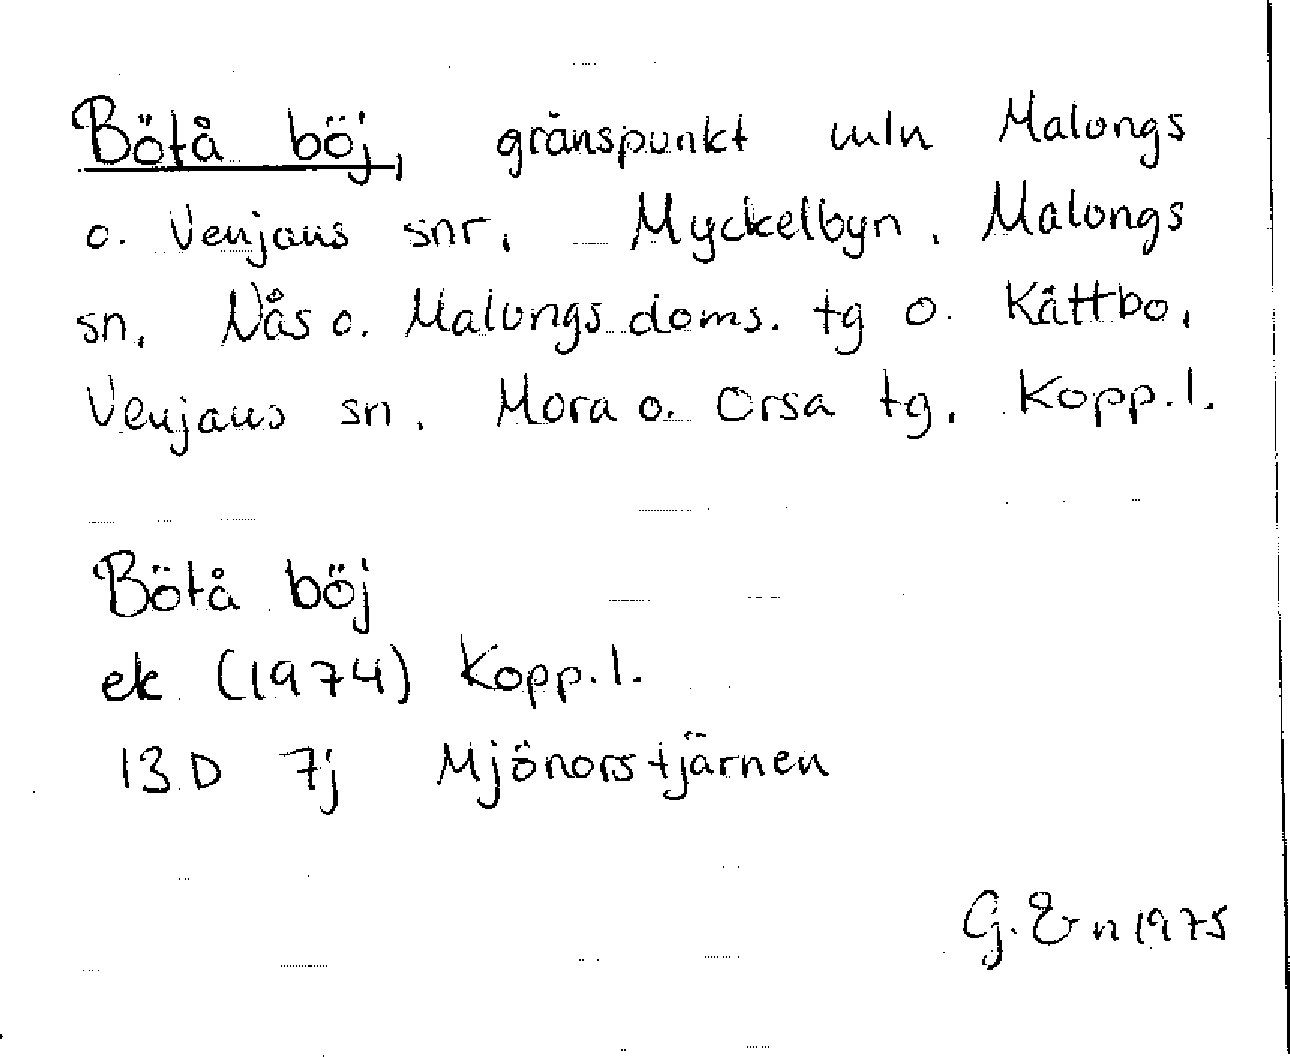 Bötå böj, gränspunkt mln Malungs
o. Venjans snr, Myckelbyn, Malungs
sn, Nås o. Malungs doms. tg o. Kättbo,
Venjans sn, Mora o. Orsa tg, Kopp.l.
Bötå böj
ek (1974) Kopp.l.
13 D 7j Mjönorstjärnen
G. En 1975